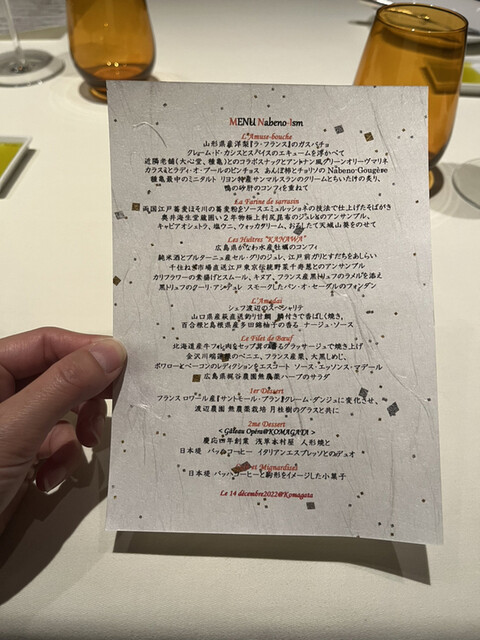 MENU Nabeno-Ism
L'Amuse-bouche
山形県産洋梨『ラ・フランス』のガスパチョ
クレーム・ド・カシスとスパイスのエキュームを浮かべて
近隣老舗(大心堂、種亀)とのコラボスナックとアントナン風グリーンオリーヴマリネ
カラスミとラディ・オ・ブールのピンチョス あんぽ柿とチョリソのNabeno-Gougère
種亀最中のミニタルト リヨン特産サンマルスランのクリームとちいたけの炙り、
鴨の砂肝のコンフィを重ねて
La Farine de sarrasin
両国江戸蕎麦ほそ川の蕎麦粉をソースエミュルッショネの技法で仕上げたそばがき
奥井海生堂蔵囲い2年物極上利尻昆布のジュレとのアンサンブル、
キャビアオシェトラ、塩ウニ、ウォッカクリーム、おろしたて天城山葵をのせて
Les Huîtres "KANAWA"
広島県かなわ水産牡蠣のコンフィ
純米酒とブルターニュ産セル・グリのジュレ、江戸前ガリとすだちをあしらい
千住ねぎ市場直送江戸東京伝統野菜千寿葱とのアンサンブル
カリフラワーの素揚げとスムール、キヌア、フランス産黒トリュフのラメルを添え
黒トリュフのクーリ・アシデュレ スモークしたパン・オ・セーグルのフォンダン
L'Amadai
シェフ渡辺のスペシャリテ
山口県産萩直送釣り甘鯛 鱗付きで香ばしく焼き、
百合根と島根県産多田錦柚子の香る ナージュ・ソース
Le Filet de Bœuf
北海道産牛フィレ肉をセップ茸の香るグラッサージュで焼き上げ
金沢川端蓮根のベニエ、フランス産栗、大黒しめじ、
ポワローとベーコンのレディクションをエスコート ソース・エッソンス・マデール
広島県梶谷農園無農薬ハーブのサラダ
1er Dessert
フランス ロワール産『サントモール・ブラン』クレーム・ダンジュに変化させ、
渡辺農園 無農薬栽培 月桂樹のグラスと共に
2me Dessert
< Gâteau Opéra@KOMAGATA >
慶応四年創業 浅草木村屋 人形焼と
日本堤 バッハコーヒー イタリアンエスプレッソとのデュオ
et Mignardises
日本堤 バッハコーヒーと駒形をイメージした小菓子
Le 14 décembre2022@Komagata